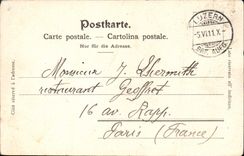 Postkarte.
Carte postale. — Cartolina postale.
Nur für die Adresse.
LUZERN
-5.VI.11.X-
Côté réservé à l'adresse.
Monsieur J. Lhermitte
restaurant Geoffroy
16 av. Rapp.
Paris (France)